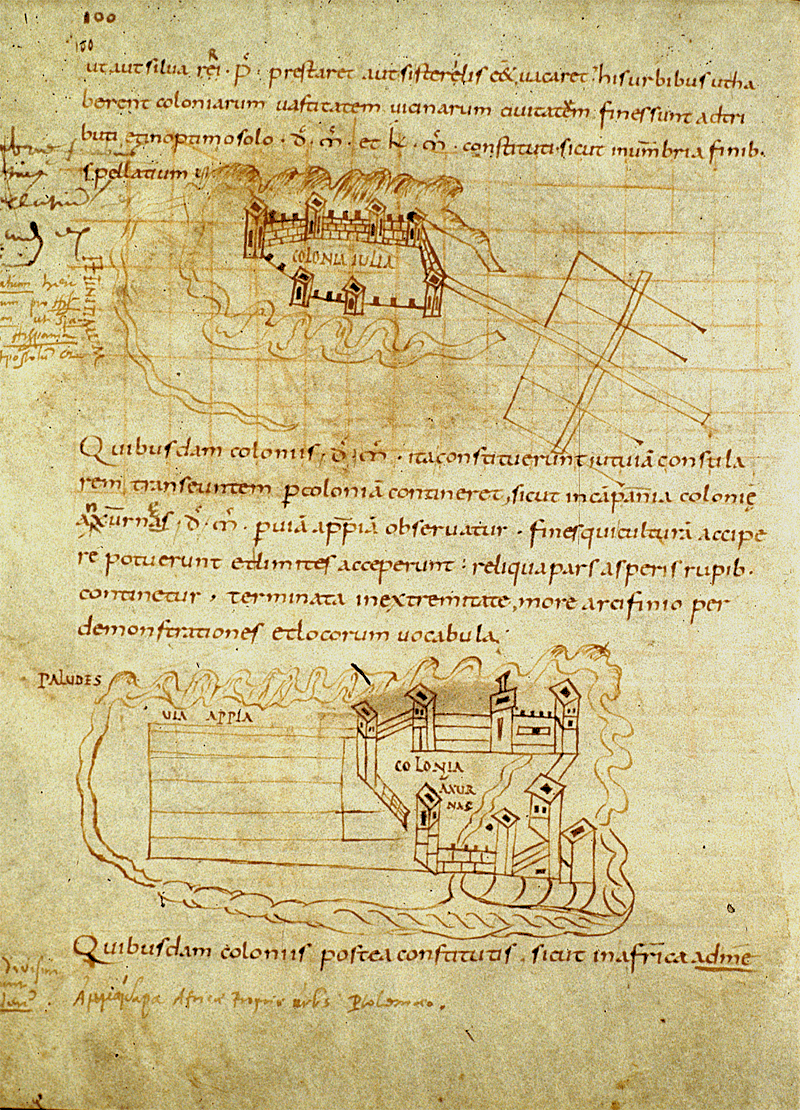 100
150
ut aut silua rei · p̄ · prestaret aut si steriles eēt uacaret his urbibus ut ha
berent coloniarum uastitatem uicinarum ciuitatem fines sunt adtri
buti et in optimo solo · d̄ · m̄ · et k̄ · m̄ · constituti sicut in umbria finib ·
spellatium
COLONIA IULIA
Quibusdam coloniis · d̄ · m̄ · ita constituerunt ut uiā consula
rem transeuntem p coloniā contineret, sicut in cāpania colonię
axurnas · d̄ · m̄ · p uiā appiā obseruatur · fines qui culturā accipe
re potuerunt et limites acceperunt : reliqua pars asperis rupib ·
continetur , terminata in extremitate, more arcifinio per
demonstrationes et locorum uocabula ;
PALUDES
UIA APPIA
COLONIA
AXUR
NAS
Quibusdam coloniis postea constitutis , sicut in africa adme